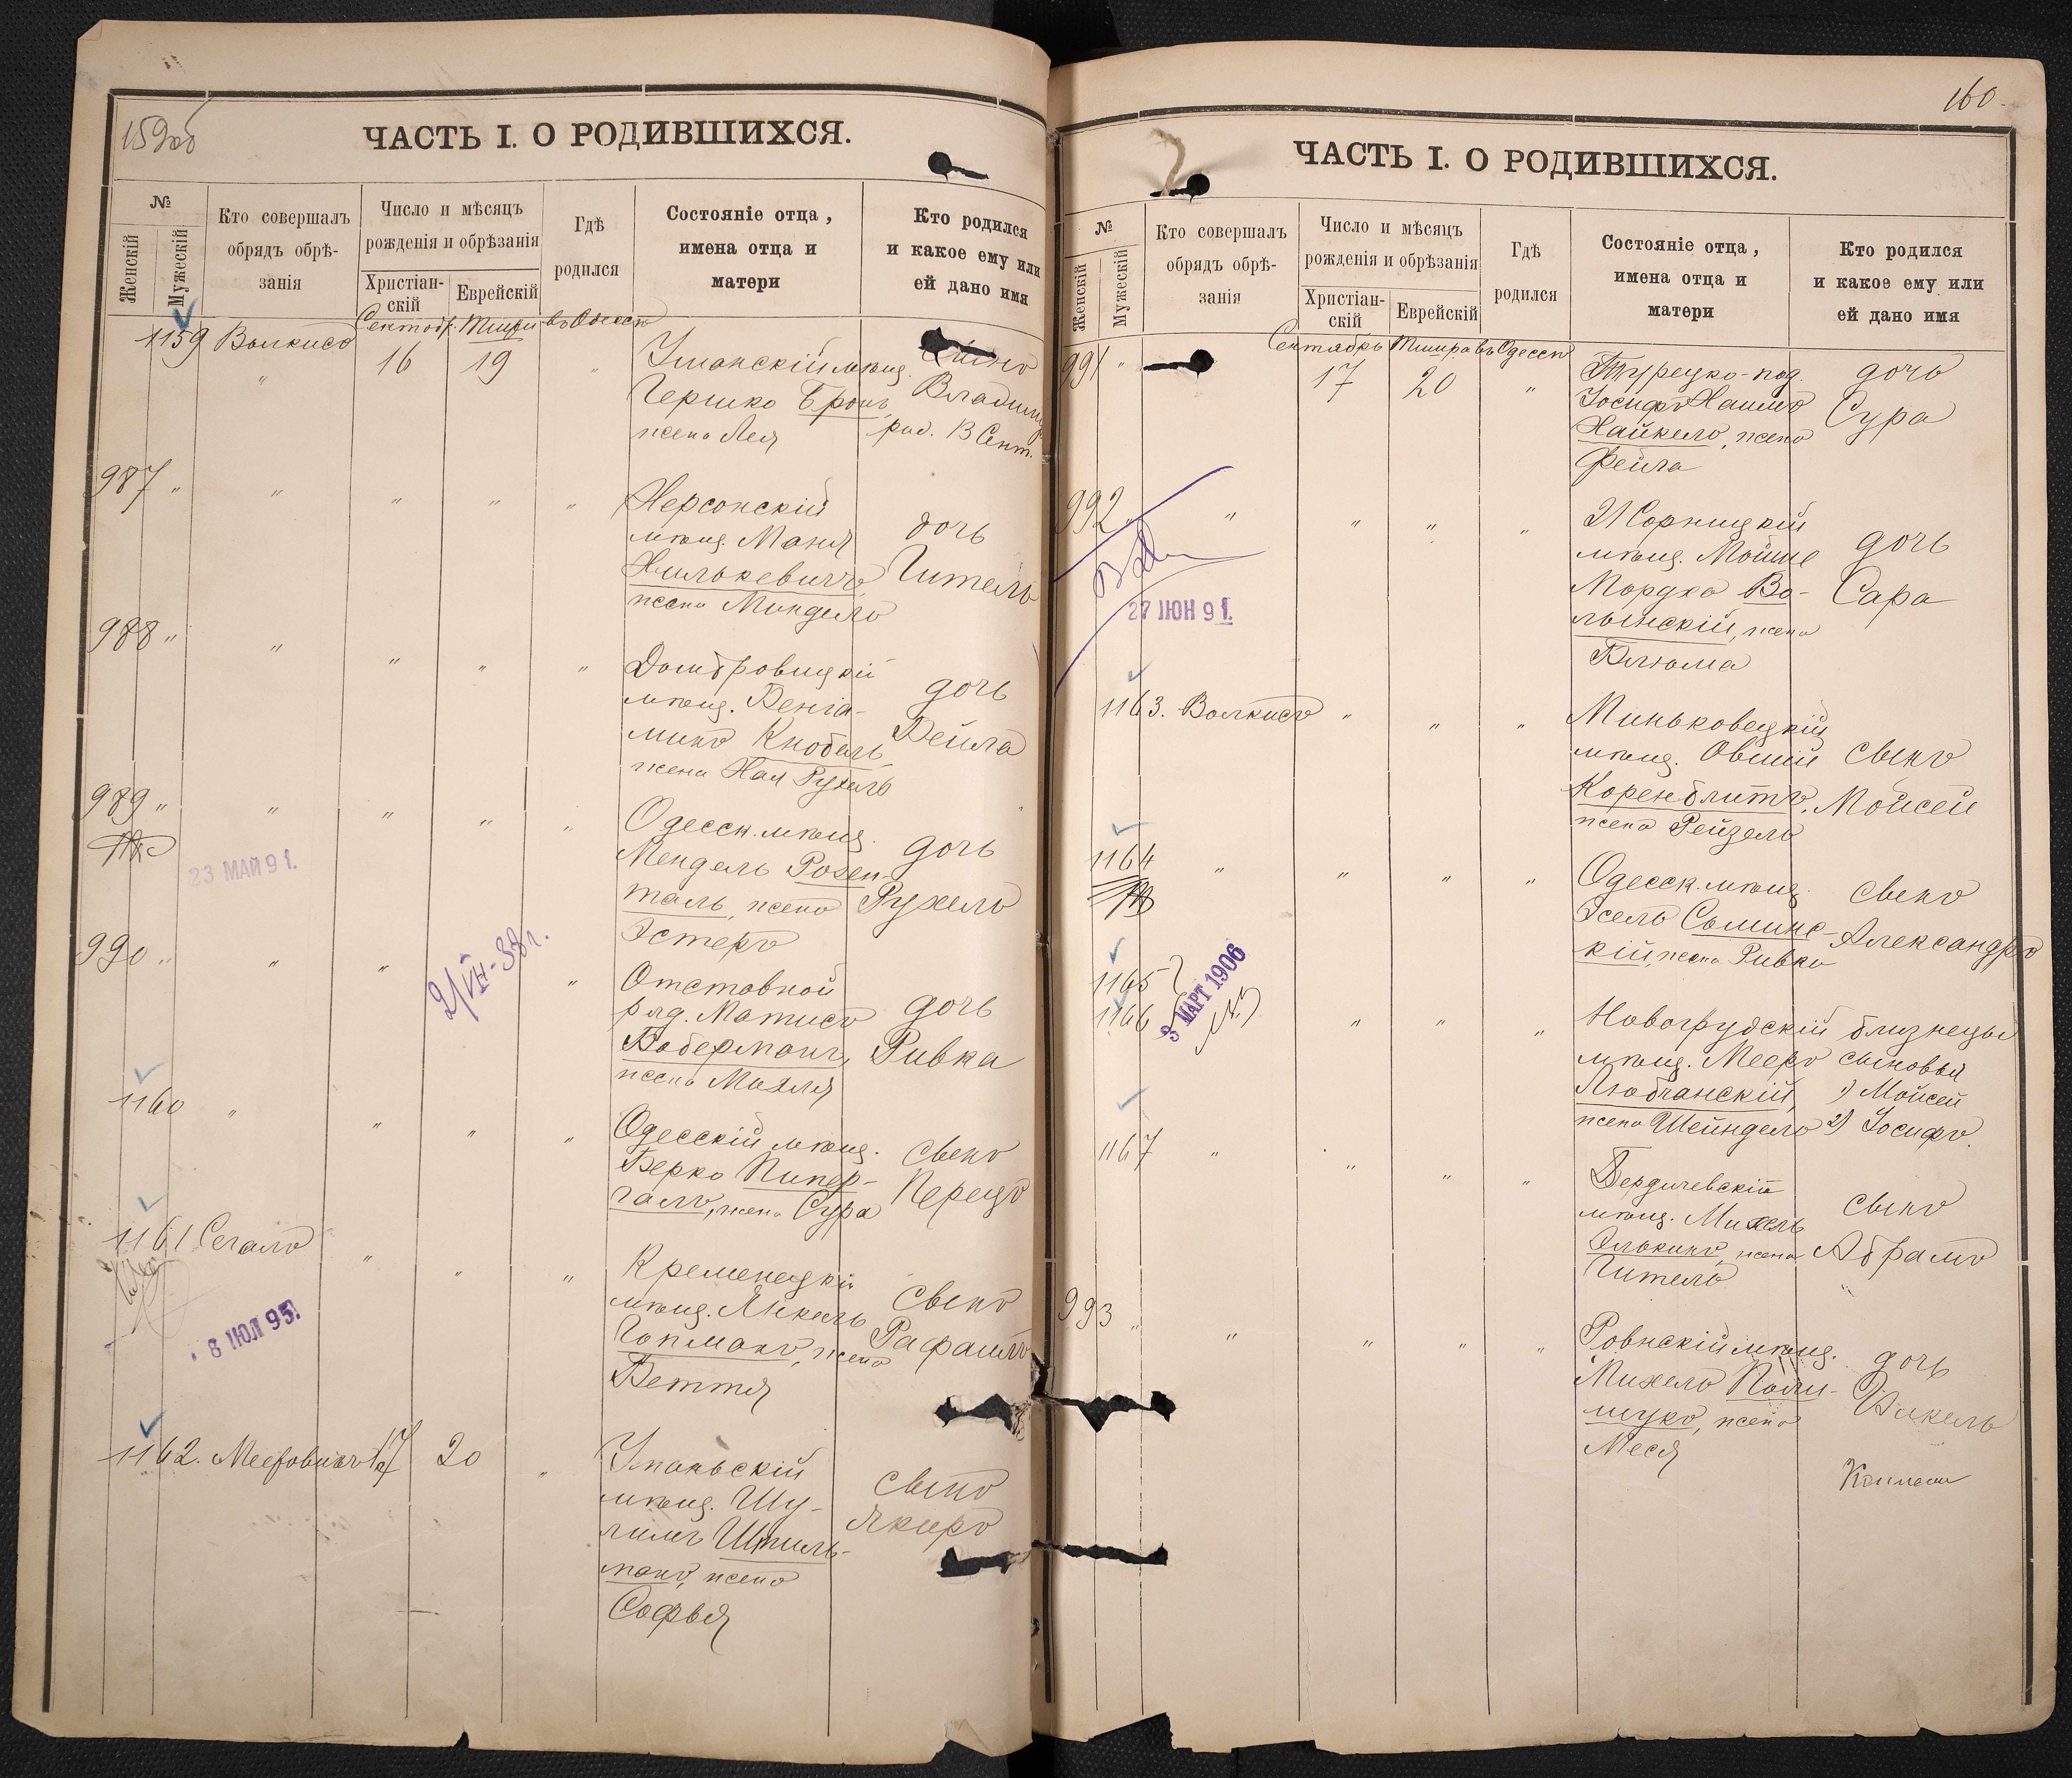 159об
ЧАСТЬ I. О РОДИВШИХСЯ.
№
Женскій
Мужескій
Кто совершалъ
обрядъ обрѣ-
занія
Число и мѣсяцъ
рожденія и обрѣзанія
Христіан-
скій
Еврейскій
Гдѣ
родился
Состояніе отца,
имена отца и
матери
Кто родился
и какое ему или
ей дано имя
Сентябр. Тишри въ Одессѣ
1159 Волкисъ
16 19 "
Уманскій мѣщ.
Гершко Бронъ,
жена Лея
сынъ
Владимір
род. 13 Сент.
987 " " " " "
Херсонскій
мѣщ. Маня
Хилькевичъ,
жена Миндель
дочь
Гитель
988 " " " " "
Домбровицкій
мѣщ. Веніа-
минъ Кнобель,
жена Хая Рухель
дочь
Бейла
989 " " " " "
23 МАЙ 91.
Одесск. мѣщ.
Мендель Розен-
таль, жена
Эстеръ
дочь
Рухель
990 " " " "
2/VII-38 г.
Отставной
ряд. Матисъ
Боберманъ,
жена Махля
дочь
Ривка
1160 " " " "
Одесскій мѣщ.
Берко Пипер-
галъ, жена Сура
сынъ
Перецъ
1161 Сегалъ " " "
8 ІЮЛ 95.
Кременецкій
мѣщ. Янкель
Гопманъ, жена
Бетти
сынъ
Рафаилъ
1162. Мееровичъ 17 20 "
Уманьскій
мѣщ. Шу-
лимъ Шпиль-
манъ, жена
Софья
сынъ
Якиръ
160.
ЧАСТЬ I. О РОДИВШИХСЯ.
№
Женскій
Мужескій
Кто совершалъ
обрядъ обрѣ-
занія
Число и мѣсяцъ
рожденія и обрѣзанія
Христіан-
скій
Еврейскій
Гдѣ
родился
Состояніе отца,
имена отца и
матери
Кто родился
и какое ему или
ей дано имя
Сентябрь Тишри въ Одессѣ
991 " 17 20 "
Турецко-под.
Іосифъ Хаимъ
Хайкелъ, жена
Фейга
дочь
Сура
992 " " " " "
27 ІЮН 91.
мѣщ. Мойше
Мордко Во-
лынскій, жена
Блюма
дочь
Сара
1163. Волкисъ " " "
Миньковецкій
мѣщ. Овшій
Коренблитъ,
жена Рейзель
сынъ
Мойсей
1164 " " " "
Одесск. мѣщ.
Сомин-
кій, жена Ривка
сынъ
Александръ
1165
1166
3 МАРТ 1906
" " "
Новогрудскій
мѣщ. Мееръ
Любчанскій,
жена Шейндель
близнецы
сыновья
1) Мойсей
2) Іосифъ.
1167 " " " "
Бердичевскій
мѣщ. Михель
Элькинъ, жена
Гитель
сынъ
Абрамъ
993 " " " " "
Ровнскій мѣщ.
Михель Поли-
щукъ, жена
Меся
дочь